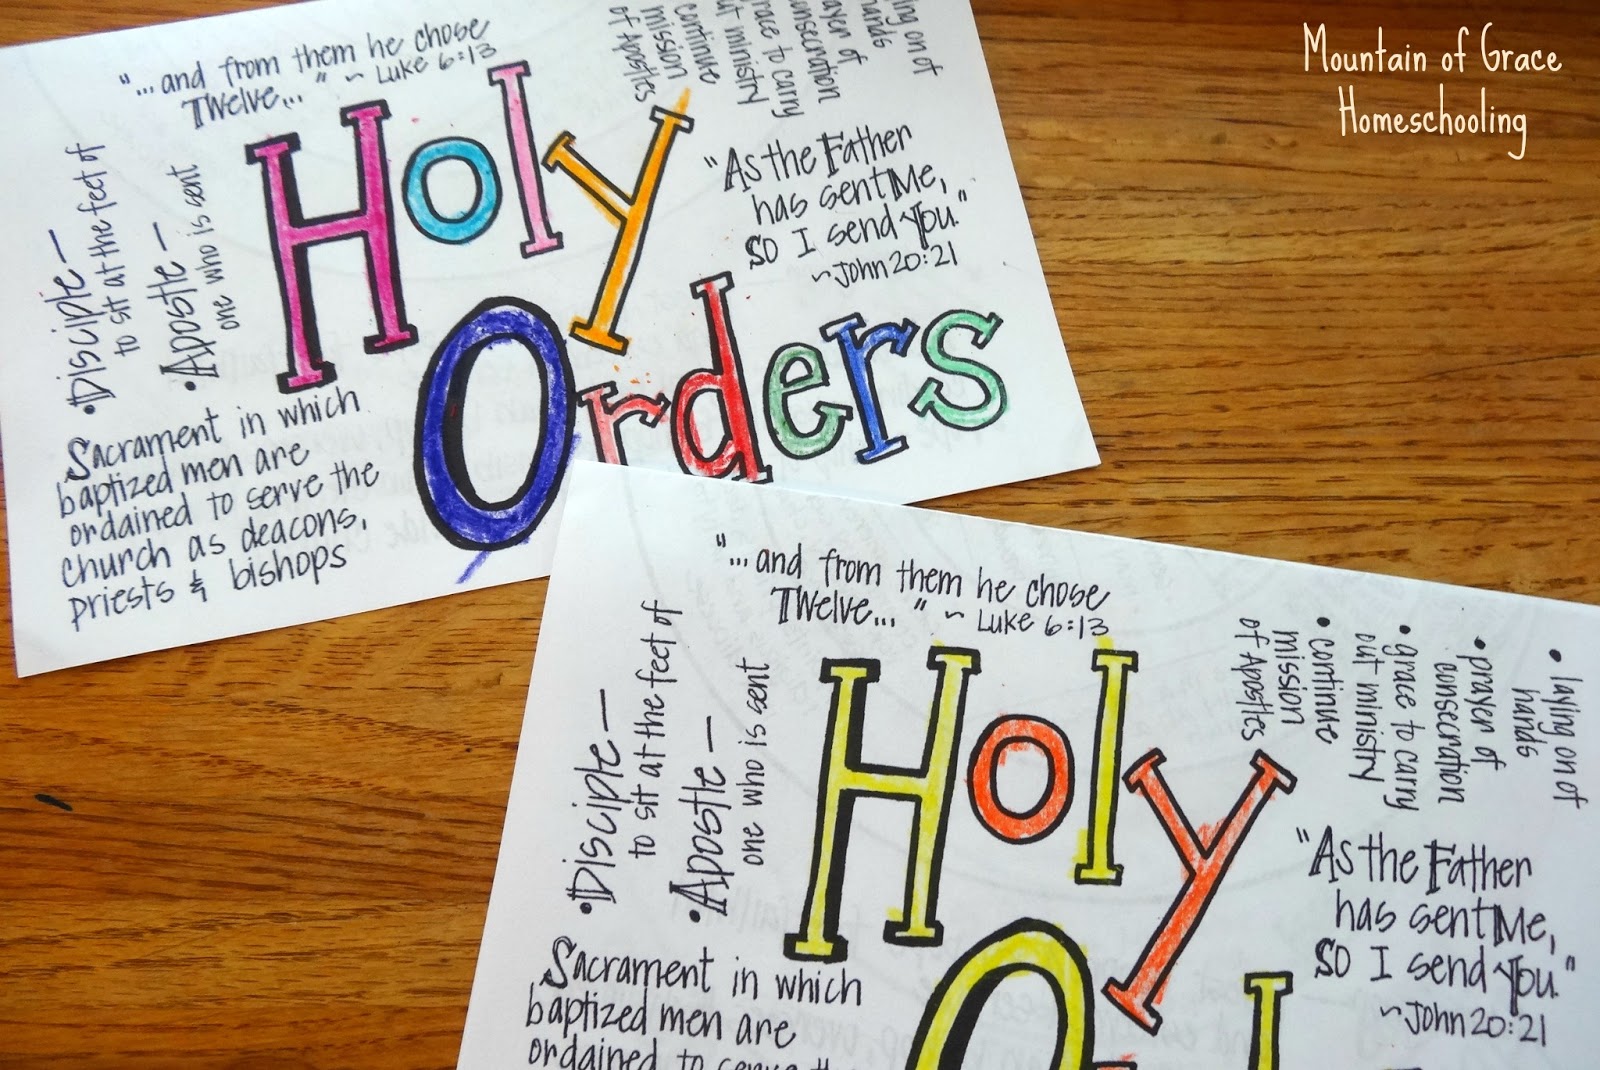 Mountain of Grace
Homeschooling
"...and from them he chose
Twelve..." ~ Luke 6:13
of Apostles
mission
continue
ut ministry
race to carry
onsecration
ayer of
hands
ing on of
• Disciple —
to sit at the feet of
• Apostle —
one who is sent
Holy
Orders
"As the Father
has sent Me,
so I send You."
~John 20:21
Sacrament in which
baptized men are
ordained to serve the
church as deacons,
priests & bishops
"...and from them he chose
Twelve..." ~ Luke 6:13
• Disciple —
to sit at the feet of
• Apostle —
one who is sent
Holy
• laying on of
hands
• prayer of
consecration
• grace to carry
out ministry
• continue
mission
of Apostles
"As the Father
has sent Me,
so I send You."
~John 20:21
Sacrament in which
baptized men are
ordained to serve the